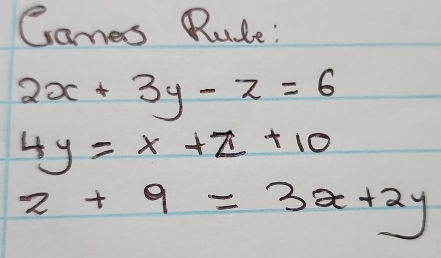 Cramers Rule:
2x + 3y - z = 6
4y = x + z + 10
z + 9 = 3x + 2y